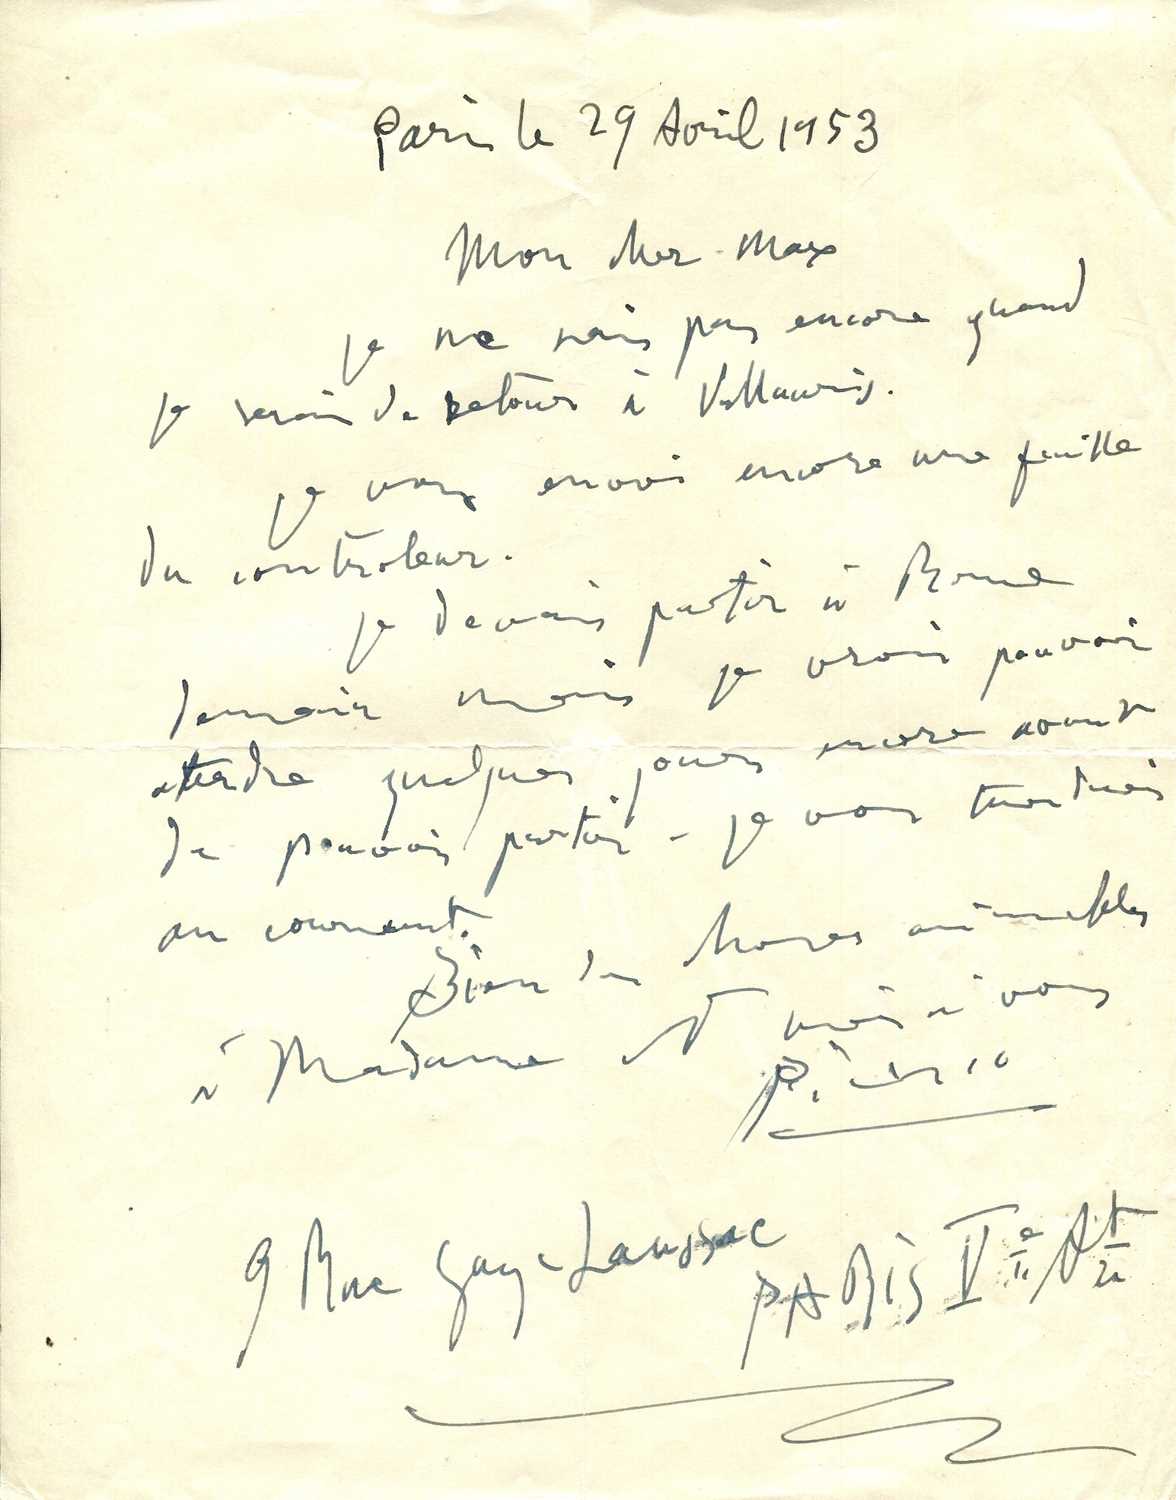 Paris le 29 Avril 1953
Mon cher Max
je ne sais pas encore quand
je serais de retour à Vallauris.
je vous envoi encore une feuille
du controleur.
je devais partir à Rome
demain mais je crois pouvoir
attendre quelques jours encore avant
de pouvoir partir - je vous tiendrais
au courrent.
Bien des choses aimables
à Madame et mois à vous
Picasso
9 Rue Gay-Laussac
PARiS V e At